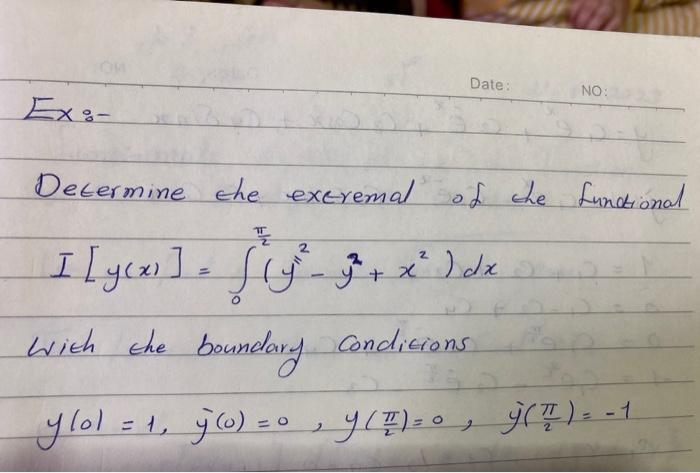 Date: NO:
Ex:-
Determine the extremal of the functional
I [y(x)] = ∫₀^(π/2) (ÿ² - y² + x²) dx
With the boundary conditions
y(0) = 1, ẏ(0) = 0, y(π/2) = 0, ẏ(π/2) = -1